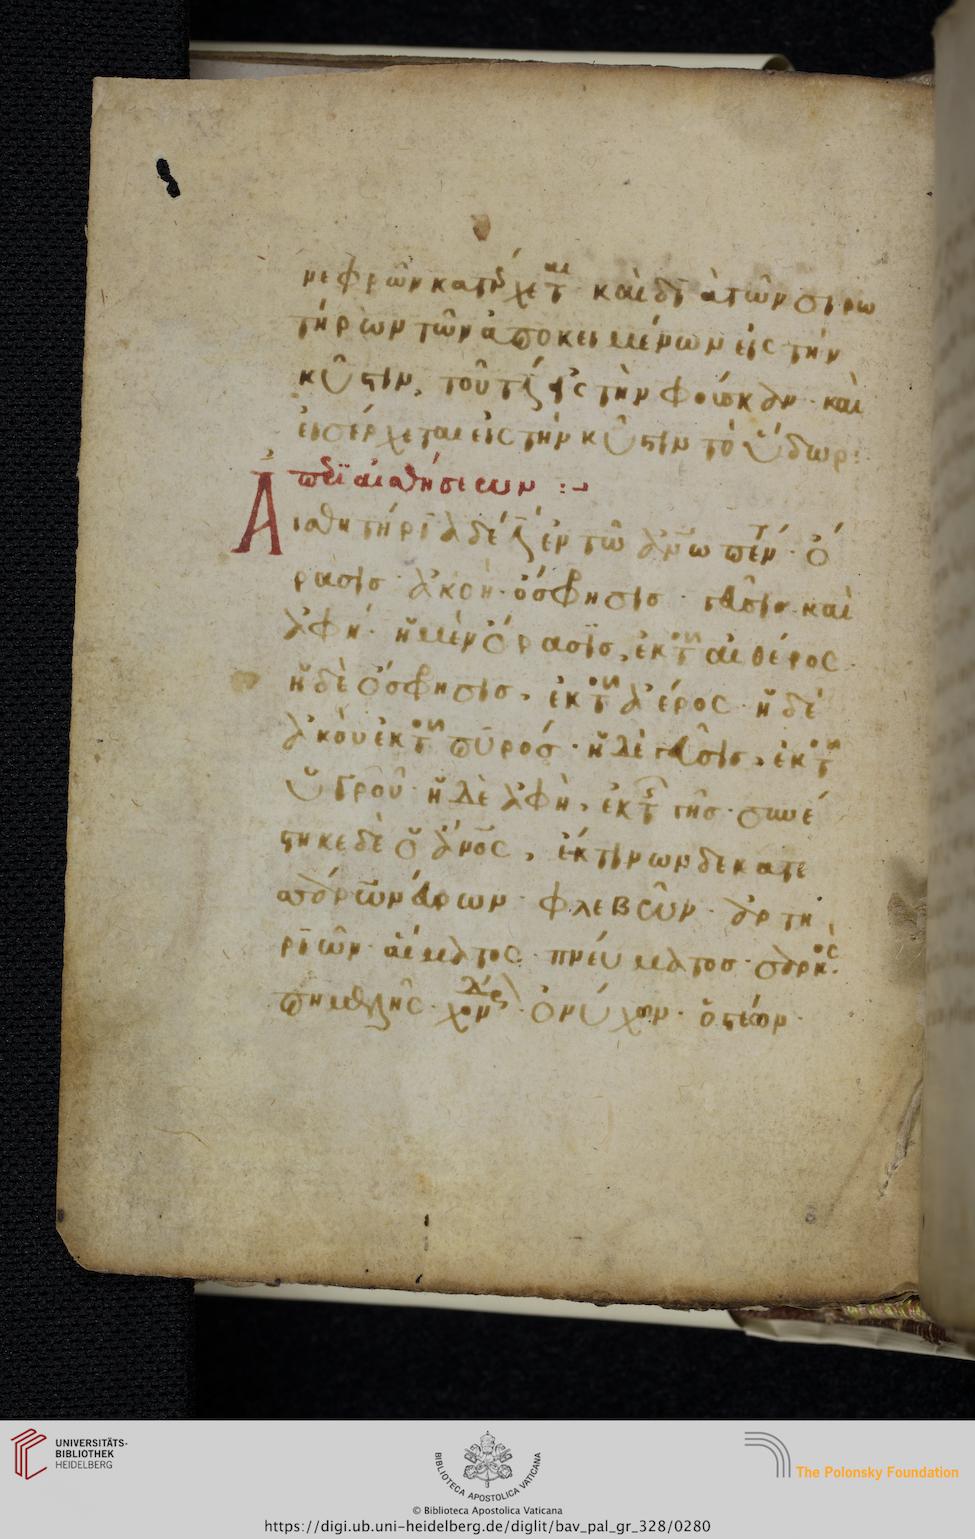 νεφρῶν κατέρχετ αι καὶ διὰ τῶν σιρω
τήρων τῶν ἀποκειμένων εἰς τὴν
κύστιν, τουτέστιν εἰς τὴν φούσκαν· καὶ
εἰσέρχεται εἰς τὴν κύστιν τὸ ὕδωρ:
περϊ αἰσθήσεων :~
Αἰσθητήρϊα δέ ἐν τῶ ἀνω πέντ· ὅ
ρασισ· ἀκοή· ὄσφρησισ· γεῦσισ· καὶ
ἁφή· ἡ μὲν ὅρασϊσ, ἐκ τοῦ αἰθέρος·
ἡ δὲ ὄσφρησισ, ἐκ τοῦ ἀέρος· ἡ δὲ
ἀκοὴ ἐκ τοῦ πυρόσ· ἡ δὲ γεῦσις, ἐκ τοῦ
ὑγροῦ· ἡ δὲ ἁφὴ, ἐκ τῆς γῆσ· συνέ
στηκε δὲ ὁ ἄνος, ἐκ τίνων δεκατε
σσάρων φλεβῶν· ἀρτη
ρϊῶν· αἵματος· πνεύματοσ· σαρκός·
ὀνύχων· ὀστέων·
UNIVERSITÄTS-
BIBLIOTHEK
HEIDELBERG
BIBLIOTECA APOSTOLICA VATICANA
The Polonsky Foundation
© Biblioteca Apostolica Vaticana
https://digi.ub.uni-heidelberg.de/diglit/bav_pal_gr_328/0280